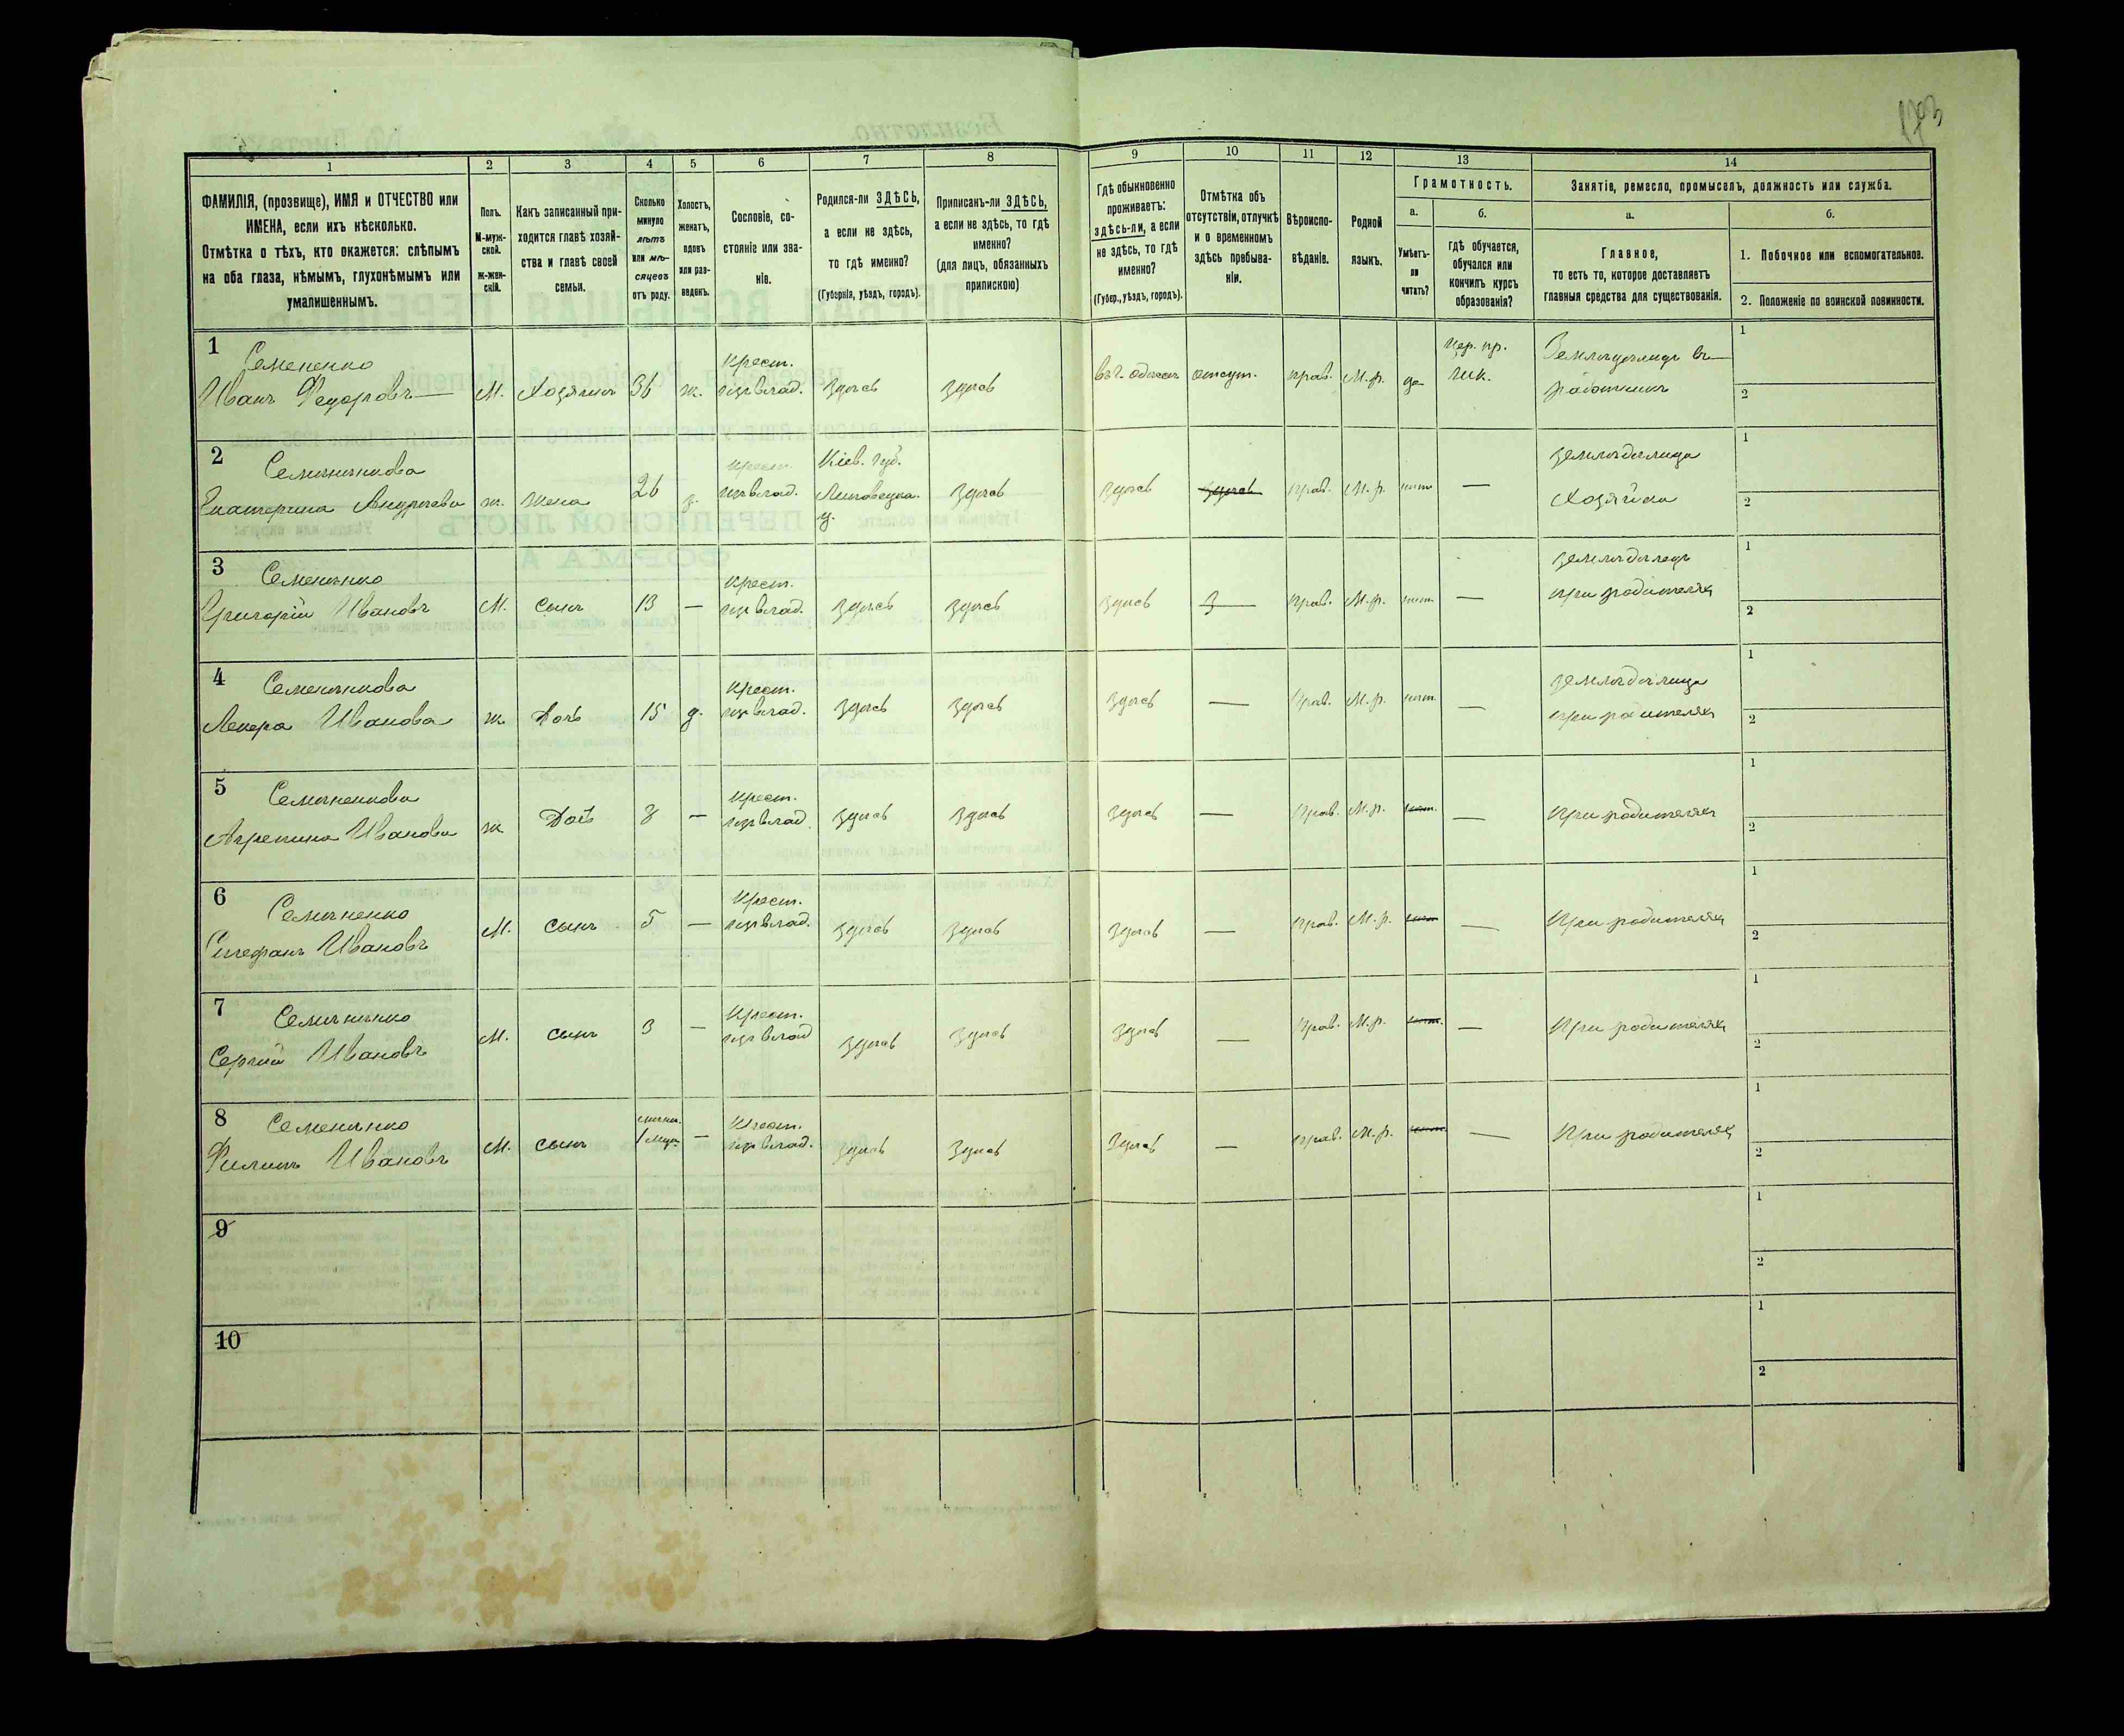 1793
1 2 3 4 5 6 7 8 9 10 11 12 13 14
ФАМИЛІЯ, (прозвище), ИМЯ и ОТЧЕСТВО или
ИМЕНА, если ихъ нѣсколько.
Отмѣтка о тѣхъ, кто окажется: слѣпымъ
на оба глаза, нѣмымъ, глухонѣмымъ или
умалишеннымъ.
Полъ.
М-муж-
ской.
ж-жен-
скій.
Какъ записанный при-
ходится главѣ хозяй-
ства и главѣ своей
семьи.
Сколько
минуло
лѣтъ
или мѣ-
сяцевъ
отъ роду.
Холостъ,
женатъ,
вдовъ
или раз-
веденъ.
Сословіе, со-
стояніе или зва-
ніе.
Родился-ли ЗДѢСЬ,
а если не здѣсь,
то гдѣ именно?
(Губернія, уѣздъ, городъ).
Приписанъ-ли ЗДѢСЬ,
а если не здѣсь, то гдѣ
именно?
(для лицъ, обязанныхъ
припискою)
Гдѣ обыкновенно
проживаетъ:
здѣсь-ли, а если
не здѣсь, то гдѣ
именно?
(Губер., уѣздъ, городъ).
Отмѣтка объ
отсутствіи, отлучкѣ
и о временномъ
здѣсь пребыва-
ніи.
Вѣроиспо-
вѣданіе.
Родной
языкъ.
Грамотность.
а.
Умѣетъ-
ли
читать?
б.
гдѣ обучается,
обучался или
кончилъ курсъ
образованія?
Занятіе, ремесло, промыселъ, должность или служба.
а.
Главное,
то есть то, которое доставляетъ
главныя средства для существованія.
б.
1. Побочное или вспомогательное.
2. Положеніе по воинской повинности.
1 Семененко крест. Цер. пр. Земледѣлецъ въ 1
Иванъ Федоровъ М. Хозяинъ 36 ж. здѣсь здѣсь отсут. прав. М.р. да работникъ 2
2 Семененкова крест. Кіев. губ. земледѣлица 1
Екатерина Андреева ж. Жена 26 з. Липовецка. здѣсь здѣсь здѣсь прав. М.р. нѣт — Хозяйка 2
у.
3 Семененко крест. земледѣлецъ 1
Григорій Ивановъ М. сынъ 13 — здѣсь здѣсь здѣсь — прав. М.р. нѣт. — при родителяхъ 2
4 Семененкова крест. земледѣлица 1
Иванова ж. Дочь 15 д. здѣсь здѣсь здѣсь — прав. М.р. нѣт. — при родителяхъ 2
5 Семененкова крест. 1
Агрепина Иванова ж. Дочь 8 — здѣсь здѣсь здѣсь — прав. М.р. нѣт. — При родителяхъ 2
6 Семененко крест. 1
Стефанъ Ивановъ М. сынъ 5 — здѣсь здѣсь здѣсь — прав. М.р. нѣт. — При родителяхъ 2
7 Семененко крест. 1
Сергій Ивановъ М. сынъ 3 — здѣсь здѣсь здѣсь — прав. М.р. нѣт. — При родителяхъ 2
8 Семененко крест. 1
Филипъ Ивановъ М. сынъ — здѣсь здѣсь здѣсь — прав. М.р. нѣт. — При родителяхъ 2
9 1
2
10 1
2